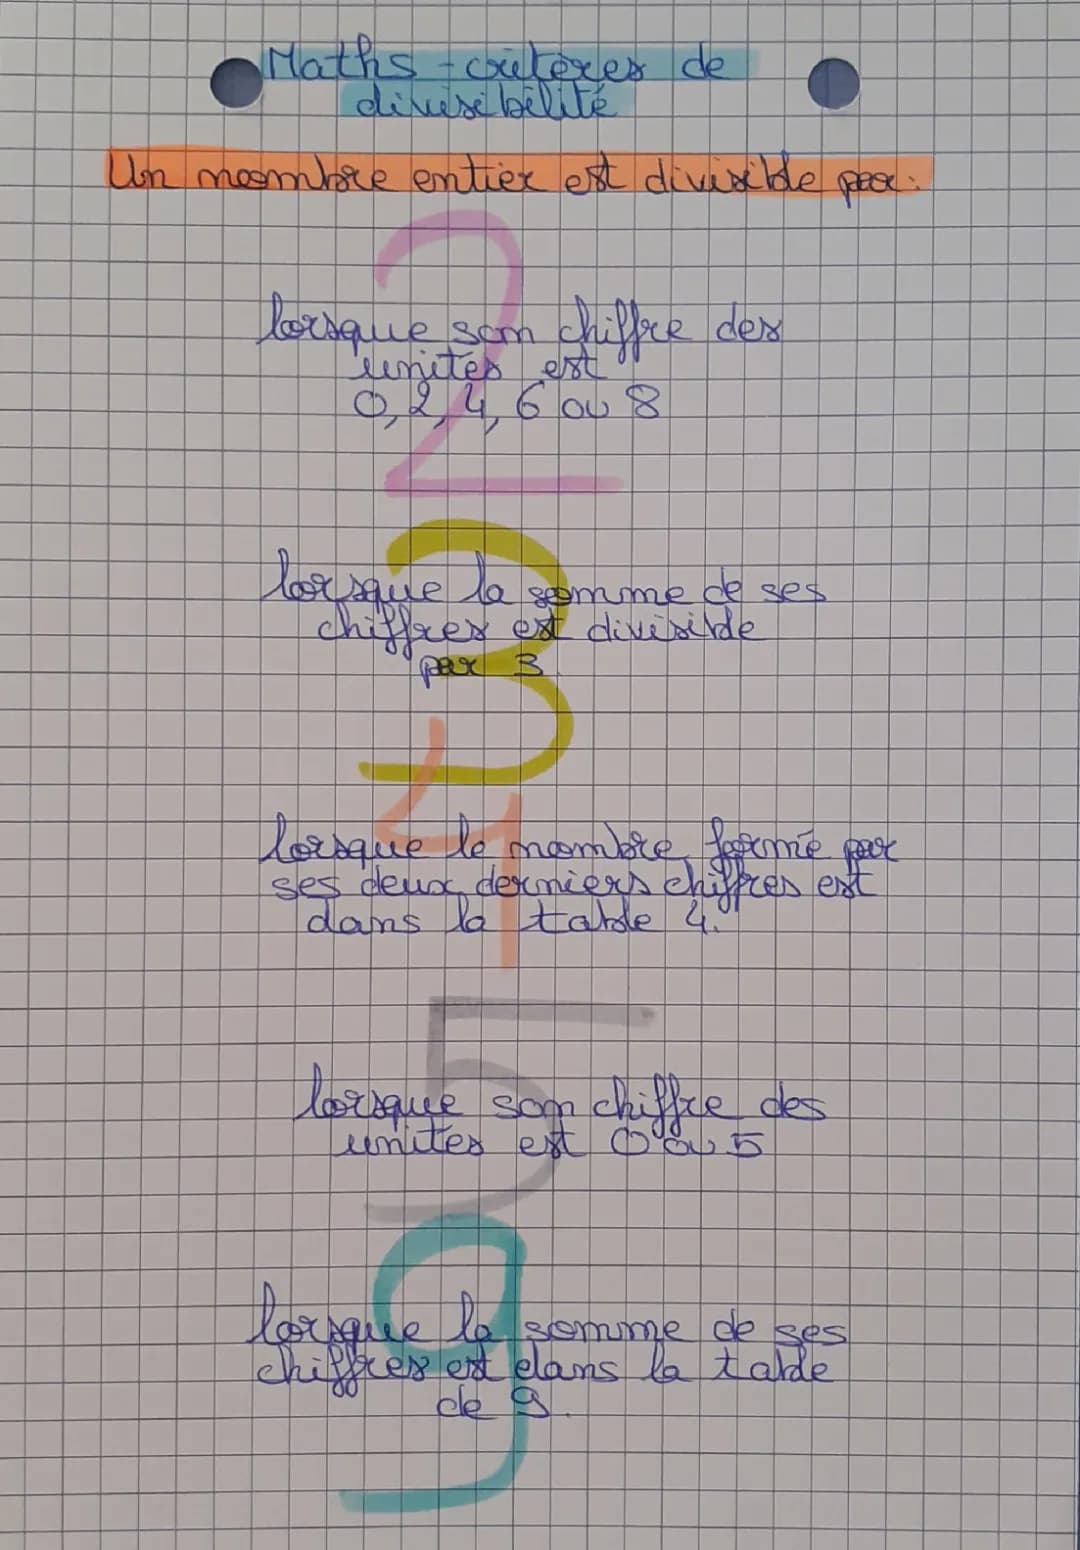 Maths - critères de
divisibilité
Un nombre entier est divisible par :
2
lorsque son chiffre des
unités est
0, 2, 4, 6 ou 8
3
lorsque la somme de ses
chiffres est divisible
par 3
4
lorsque le nombre formé par
ses deux derniers chiffres est
dans la table 4.
5
lorsque son chiffre des
unités est 0 ou 5
9
lorsque la somme de ses
chiffres est dans la table
de 9.